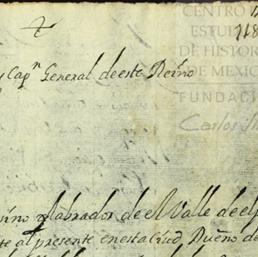 CENTRO
ESTU
DE HISTOR
DE MEXIC
FUNDACI
Carlos Sl
y Capn General de este Reino
ino y labrador de el Valle de el
te al presente en esta Ciud, Dueño de